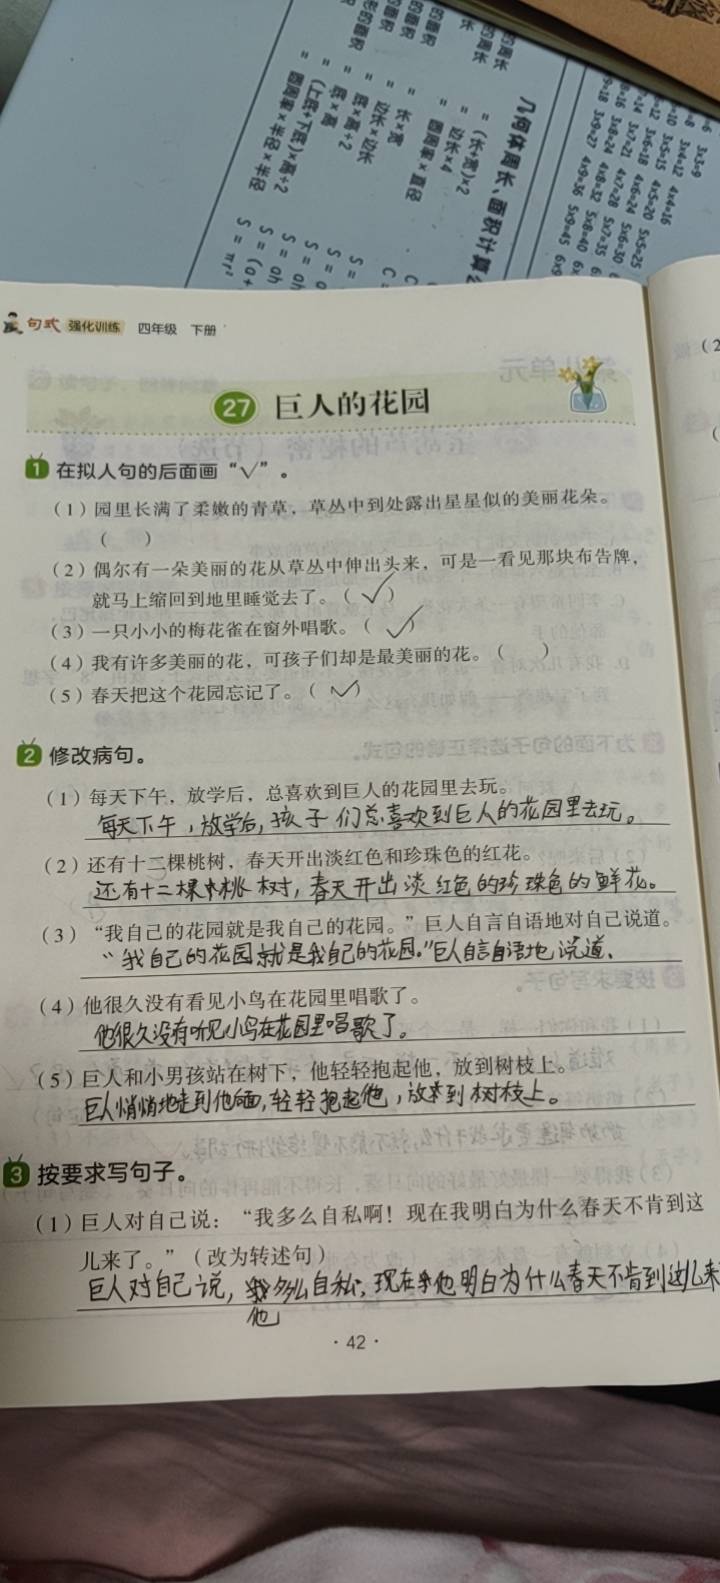 几何体周长、面积计算公
= (长+宽)×2
= 边长×4
= 圆周率×直径
= 长×宽
= 边长×边长
= 底×高÷2
= 底×高
= (上底+下底)×高÷2
= 圆周率×半径×半径
S = ah
S = (a+
S = πr²
3×3=9
3×4=12 4×4=16
3×5=15 4×5=20 5×5=25
3×6=18 4×6=24 5×6=30
3×7=21 4×7=28 5×7=35
3×8=24 4×8=32 5×8=40
3×9=27 4×9=36 5×9=45
句式 强化训练 四年级 下册
27 巨人的花园
1 在拟人句的后面画“√”。
(1)园里长满了柔嫩的青草,草丛中到处露出星星似的美丽花朵。
( )
(2)偶尔有一朵美丽的花从草丛中伸出头来,可是一看见那块布告牌,
就马上缩回到地里睡觉去了。( √ )
(3)一只小小的梅花雀在窗外唱歌。( √ )
(4)我有许多美丽的花,可孩子们却是最美丽的花。( )
(5)春天把这个花园忘记了。( √ )
2 修改病句。
(1)每天下午,放学后,总喜欢到巨人的花园里去玩。
每天下午,放学后,孩子们总喜欢到巨人的花园里去玩。
(2)还有十二棵桃树,春天开出淡红色和珍珠色的红花。
还有十二棵桃树,春天开出淡红色的珍珠色的鲜花。
(3)“我自己的花园就是我自己的花园。”巨人自言自语地对自己说道。
“我自己的花园就是我自己的花园。”巨人自言自语地说道.
(4)他很久没有看见小鸟在花园里唱歌了。
他很久没有听见小鸟在花园里唱歌了。
(5)巨人和小男孩站在树下,他轻轻抱起他,放到树枝上。
巨人悄悄地走到他后面,轻轻抱起他,放到树枝上。
3 按要求写句子。
(1)巨人对自己说:“我多么自私啊!现在我明白为什么春天不肯到这
儿来了。”(改为转述句)
巨人对自己说,多么自私,现在他明白为什么春天不肯到这儿来
他
· 42 ·